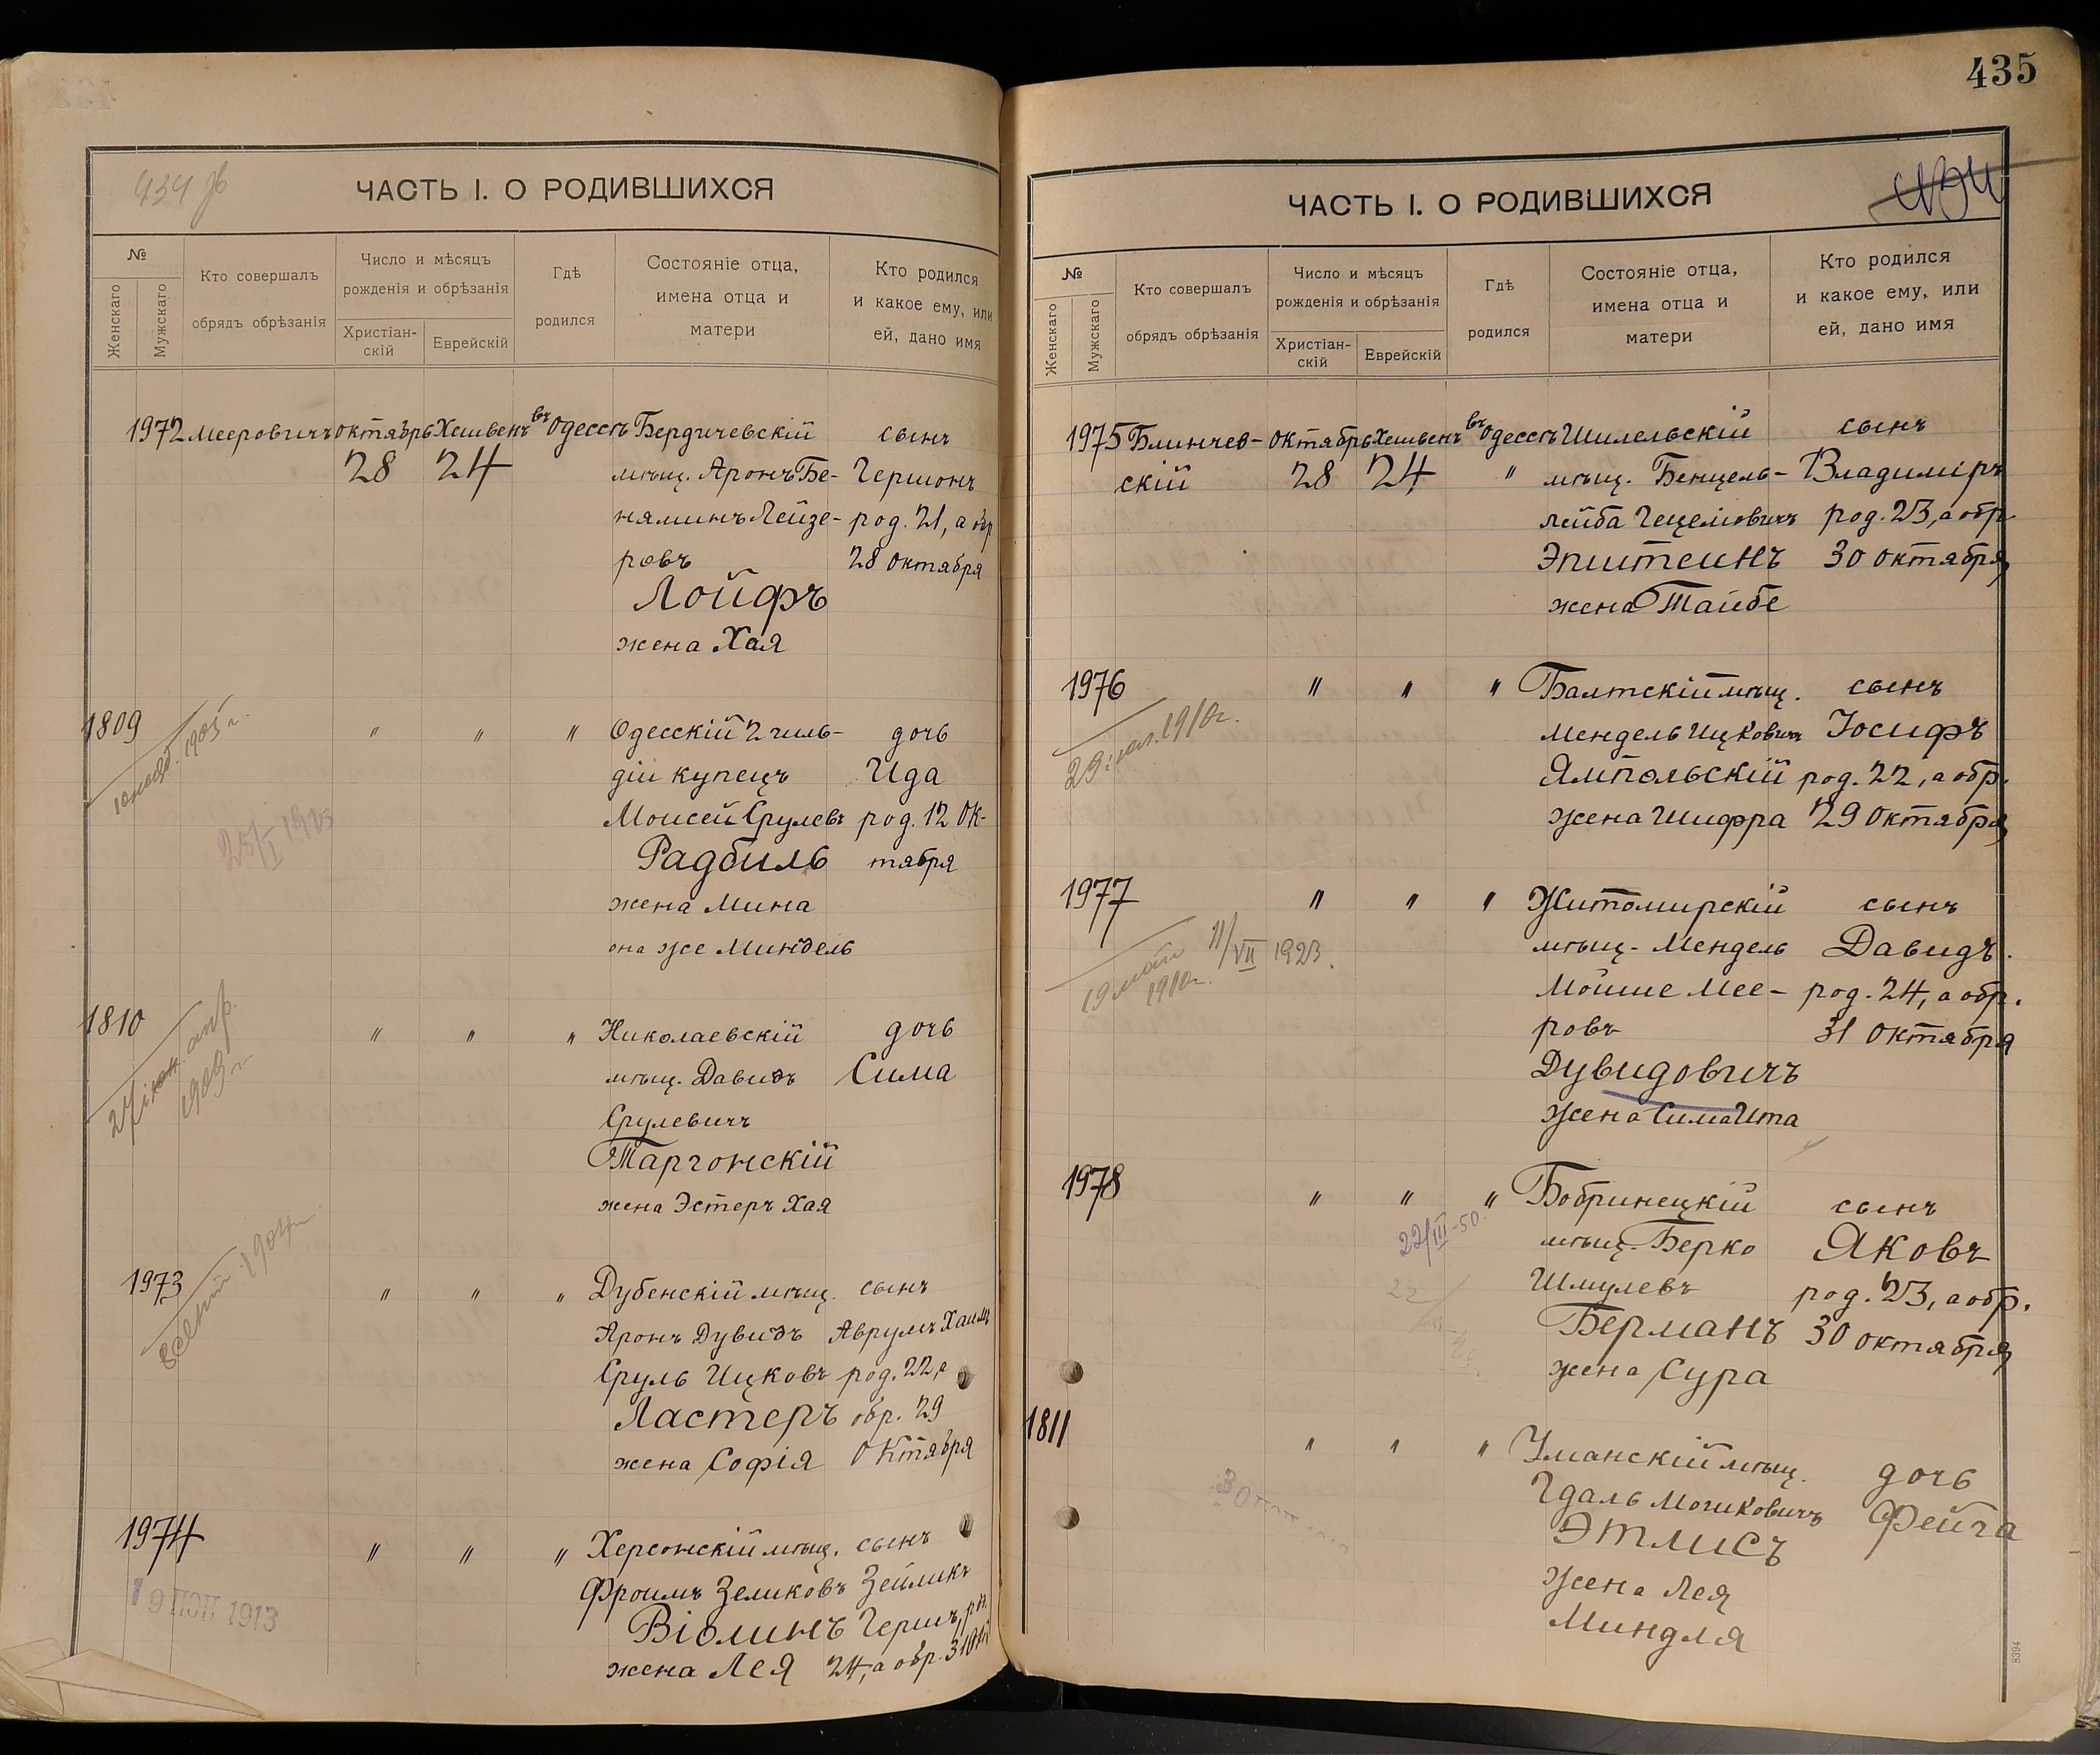 435
434 об
ЧАСТЬ I. О РОДИВШИХСЯ
№
Женскаго
Мужскаго
Кто совершалъ
обрядъ обрѣзанія
Число и мѣсяцъ
рожденія и обрѣзанія
Христіан-
скій
Еврейскій
Гдѣ
родился
Состояніе отца,
имена отца и
матери
Кто родился
и какое ему, или
ей, дано имя
1972 Мееровичъ октябрь Хешвенъ въ Одессѣ Бердичевскій сынъ
28 24 мѣщ. Аронъ Бе- Гершонъ
няминъ Лейзе- род. 21, а обр
ровъ 28 октября
Лойфъ
жена Хая
1809 " " " Одесскій 2 гиль- дочь
1905 г.
діи купецъ Ида
Моисей Срулевъ род. 12 Ок-
25/I 1923
Радбиль тября
жена Мина
она же Миндель
1810 " " " Николаевскій дочь
1909 г
мѣщ. Давидъ Сима
Срулевичъ
Таргонскій
жена Эстеръ Хая
1973 " " " Дубенскій мѣщ. сынъ
Аронъ Дувидъ Аврумъ Хаимъ
Сруль Ицковъ род. 22, а
Ластеръ обр. 29
жена Софія Октября
1974 " " " Херсонскій мѣщ. сынъ
19 1913
Фроимъ Зеликовъ Зейликъ
Віолинъ Гершъ, род.
жена Лея 24, а обр. 31 Окт
ЧАСТЬ I. О РОДИВШИХСЯ
434
№
Женскаго
Мужскаго
Кто совершалъ
обрядъ обрѣзанія
Число и мѣсяцъ
рожденія и обрѣзанія
Христіан-
скій
Еврейскій
Гдѣ
родился
Состояніе отца,
имена отца и
матери
Кто родился
и какое ему, или
ей, дано имя
1975 Блинчев- октябрь Хешвенъ въ Одессѣ Шилельскій сынъ
скій 28 24 " мѣщ. Бенцель- Владиміръ
Лейба Гецелiовичъ род. 23, а обр.
Эпштеинъ 30 октября
жена Тайбе
1976 " " " Балтскій мѣщ. сынъ
1910 г.
Мендель Ицковичъ Іосифъ
Ямпольскій род. 22, а обр.
жена Шифра 29 Октября
1977 " " " Житомирскій сынъ
19 май
1910 г.
11/VII 1923.
мѣщ. Мендель Давидъ.
Мойше Мее- род. 24, а обр.
ровъ 31 Октября
Дувидовичъ
жена Сима Ита
1978 " " " Бобринецкій сынъ
22/III-50.
мѣщ. Берко Яковъ
Шмулевъ род. 23, а обр.
Берманъ 30 октября
жена Сура
1811 " " " Уманскій мѣщ. дочь
Гдаль Мошковичъ Фейга
Этлисъ
жена Лея
Миндля
8394